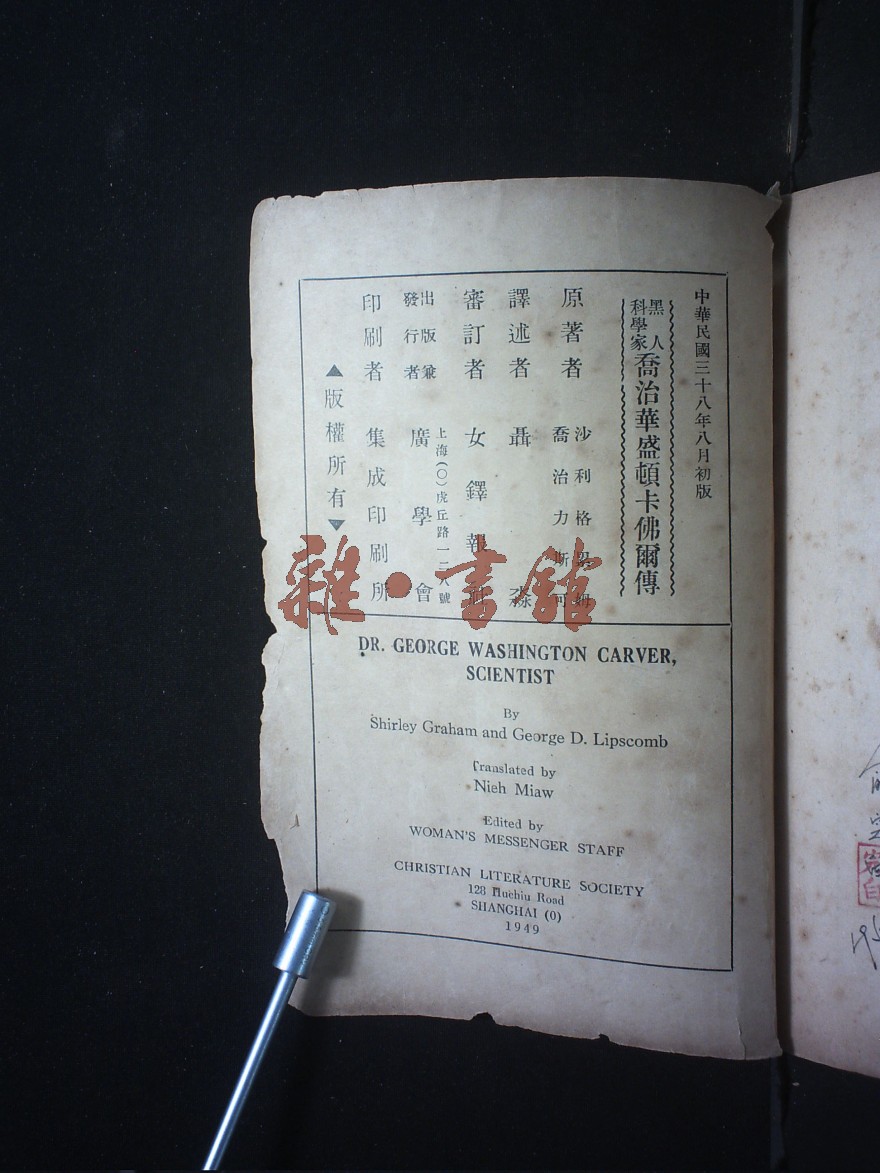 中華民國三十八年八月初版
黑人科學家喬治華盛頓卡佛爾傳
原著者 沙利格 姆
喬治力斯可
譯述者 聶淼
審訂者 女鐸報
出版兼發行者 廣學會
上海(〇)虎丘路一二八號
印刷者 集成印刷所
▲版權所有▼
DR. GEORGE WASHINGTON CARVER,
SCIENTIST
By
Shirley Graham and George D. Lipscomb
Translated by
Nieh Miaw
Edited by
WOMAN'S MESSENGER STAFF
CHRISTIAN LITERATURE SOCIETY
128 Huchiu Road
SHANGHAI (0)
1949
雜·書館